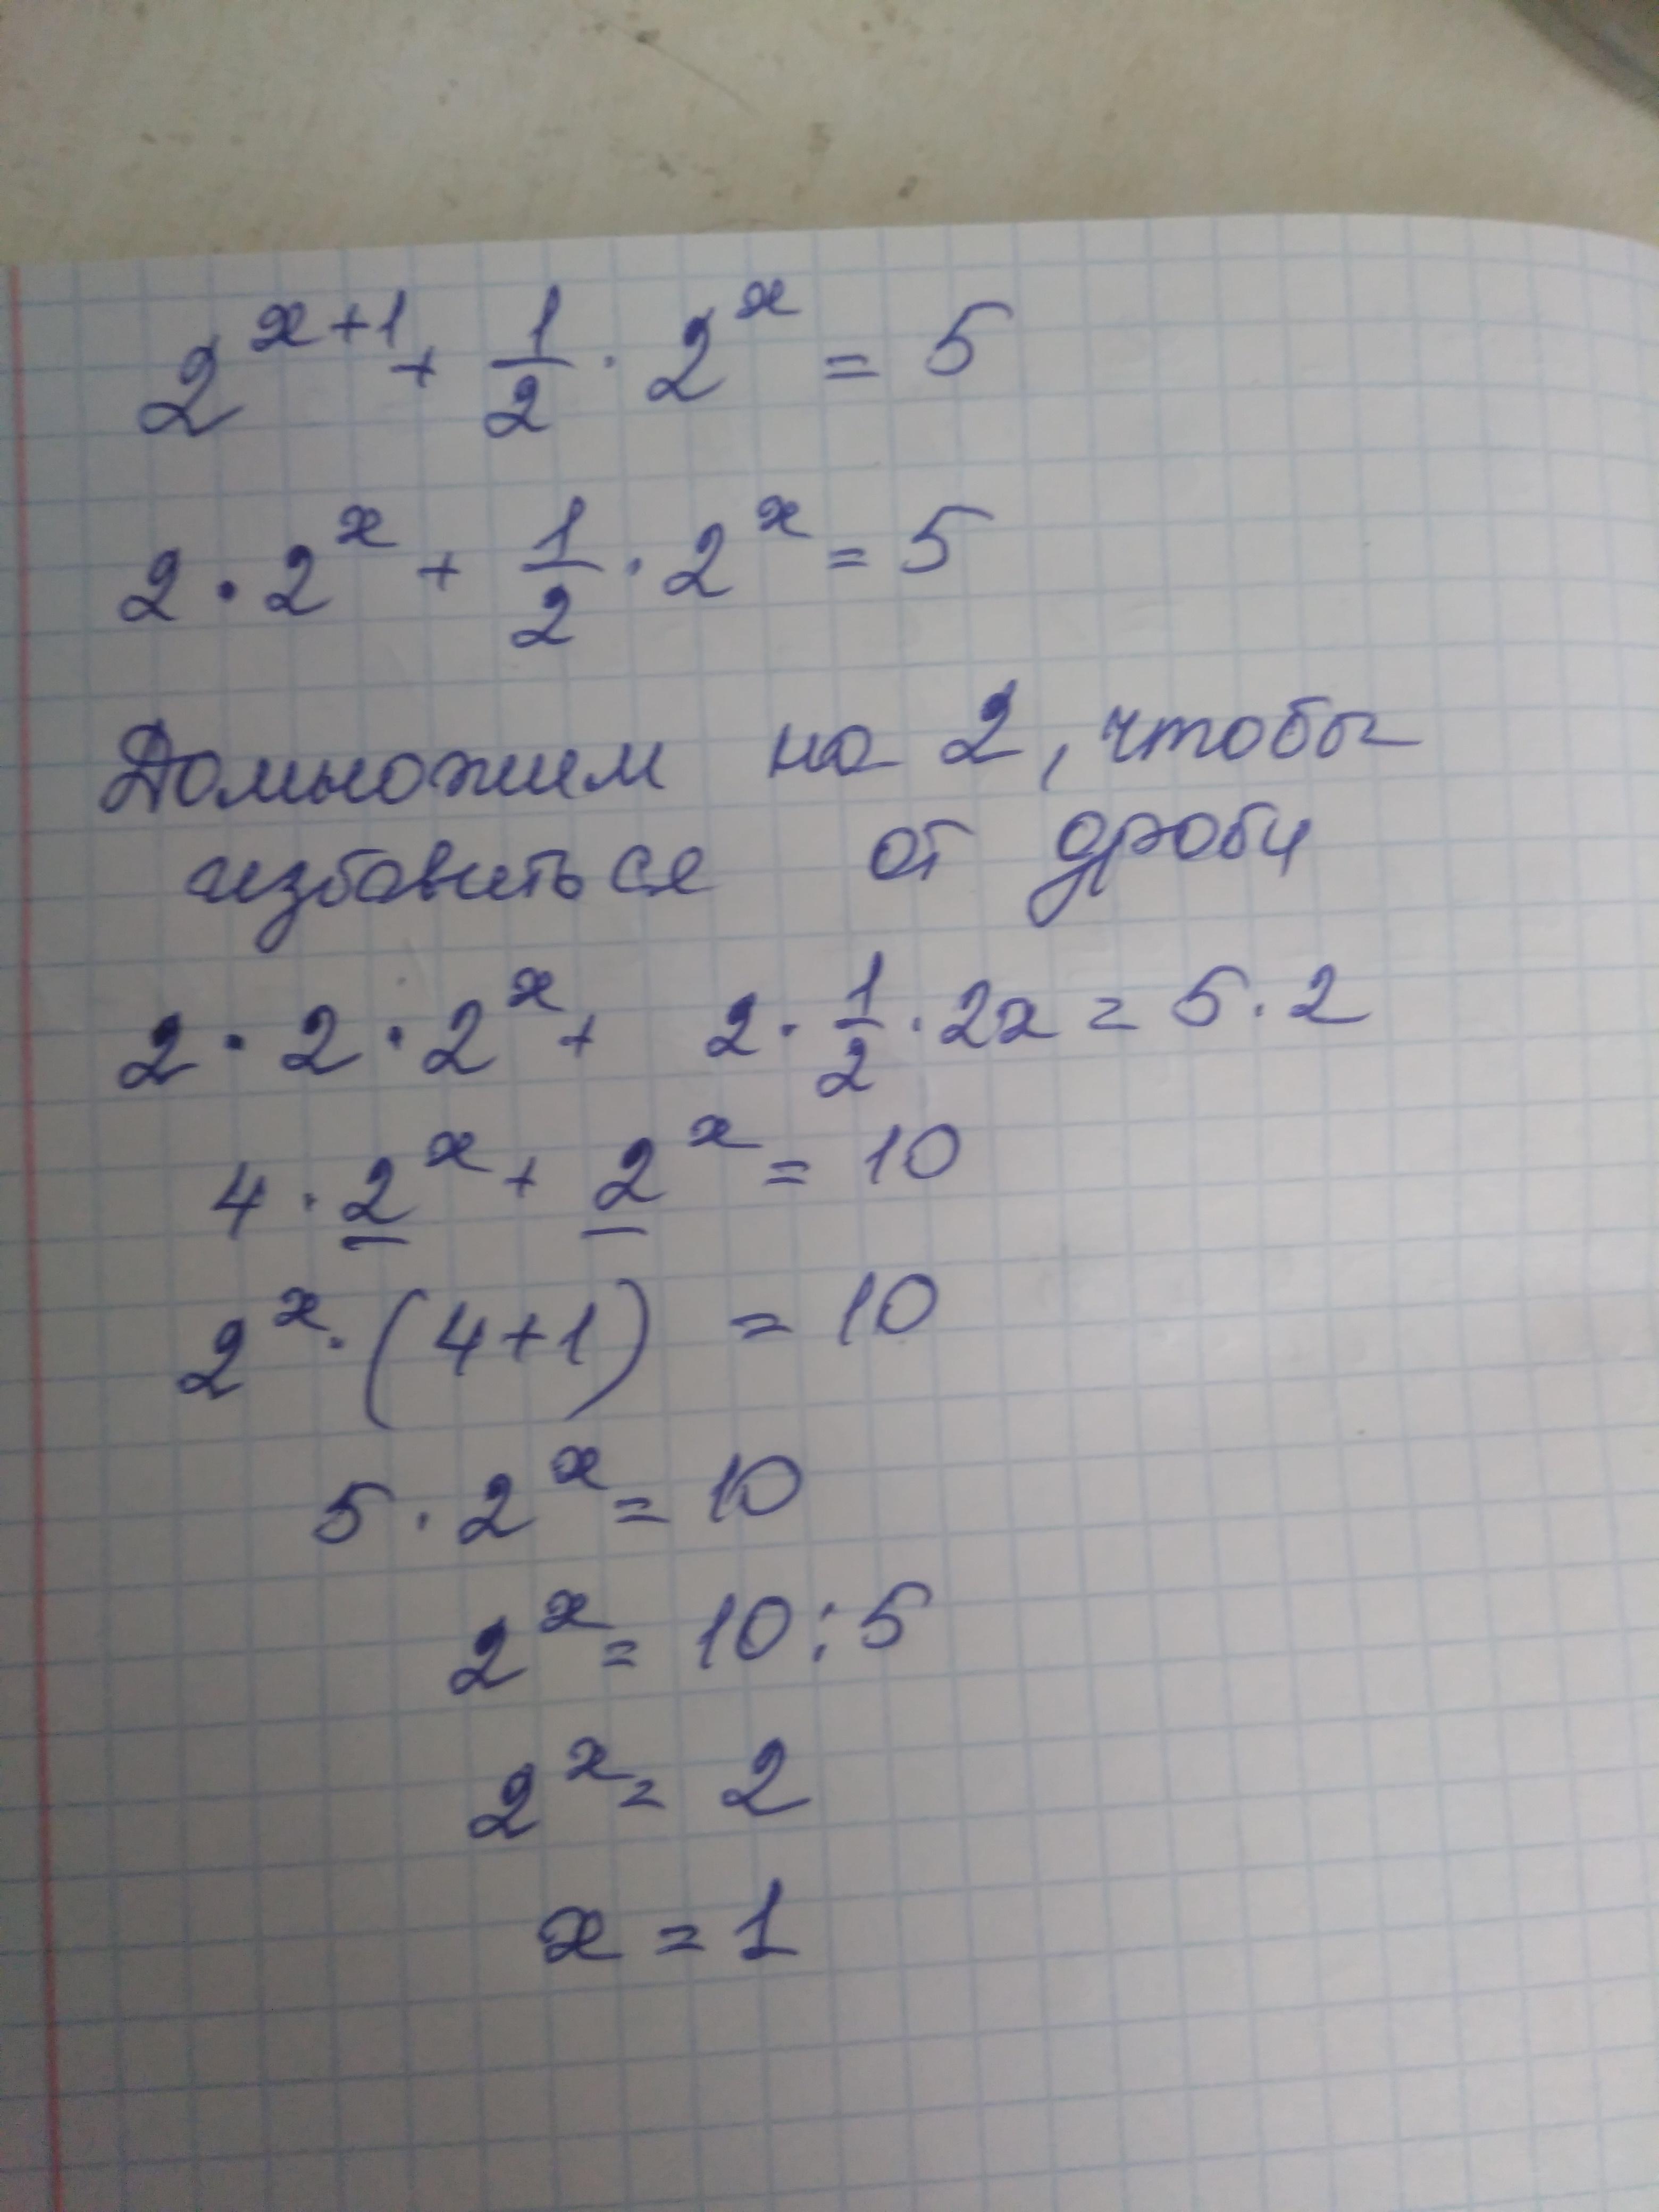 2^{x+1} + 1/2 · 2^x = 5
2 · 2^x + 1/2 · 2^x = 5
Домножим на 2, чтобы
избавиться от дроби
2 · 2 · 2^x + 2 · 1/2 · 2x = 5 · 2
4 · 2^x + 2^x = 10
2^x · (4+1) = 10
5 · 2^x = 10
2^x = 10 : 5
2^x = 2
x = 1